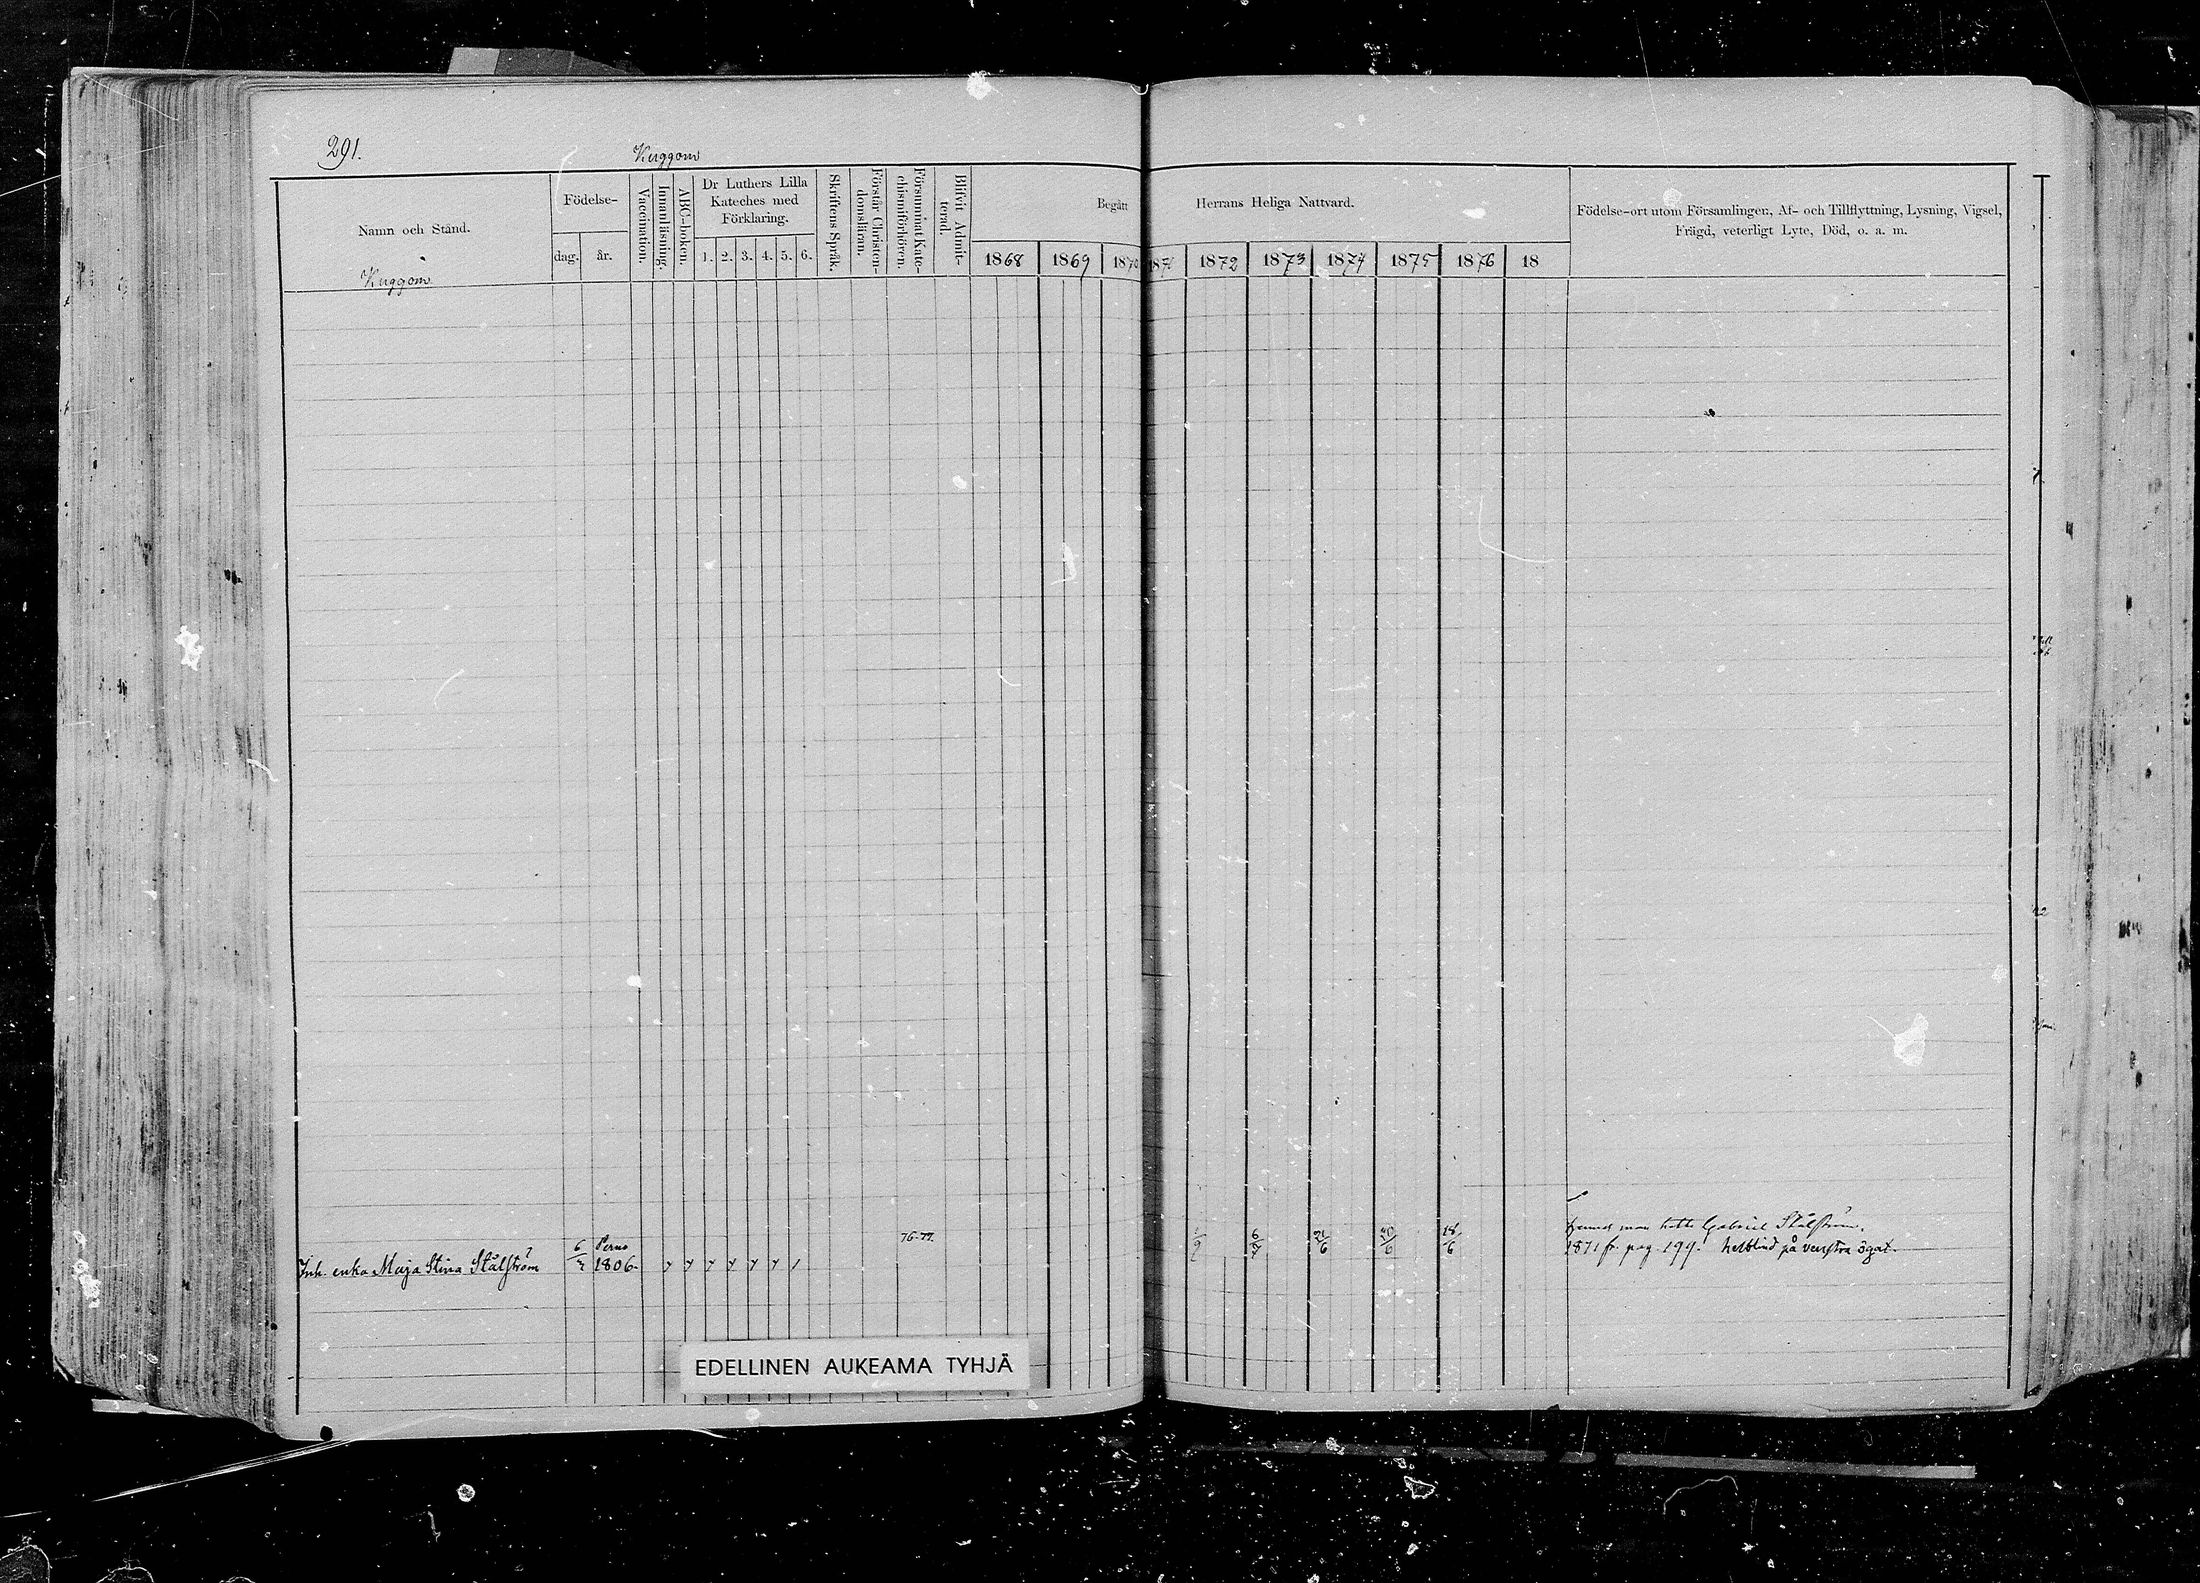 291.
Kuggom
Namn och Stånd.
Födelse-
dag.
år.
Vaccination.
Innanläsning.
ABC-boken.
Dr Luthers Lilla
Kateches med
Förklaring.
1. 2. 3. 4. 5. 6.
Skriftens Språk.
Förstår Christen-
domsläran.
Församnat Kate-
chismiförhören.
Blifvit Admit-
terad.
Begått Herrans Heliga Nattvard.
1868 1869 1870 1871 1872 1873 1874 1875 1876 18
Födelse-ort utom Församlingen, Af- och Tillflyttning, Lysning, Vigsel,
Frägd, veterligt Lyte, Död, o. a. m.
Kuggom
76-77.
Perno
Inh. enka Maja Stina Stålström 1806.
6/7 21/6 20/6 18/6
man hette Gabriel Stålström.
1871 fr. pag. 199. helblind på venstra ögat.
EDELLINEN AUKEAMA TYHJÄ